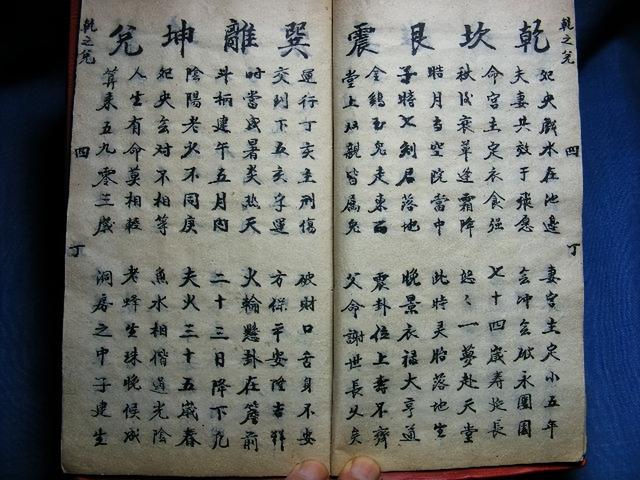 乾之兌 四 丁
乾 坎 艮 震
夗央戲水在池邊 妻宮主定小五年
夫妻共效于 永團圓
命宮主定衣食強 七十四歲壽延長
秋後衰草逢霜降 忽々一夢赴天堂
皓月当空院當中 此時灵胎落地生
子時七刻君落地 晚景衣福大亨通
金鷄玉兔走東西 震卦位上壽不齊
堂上双親皆屬兔 父命謝世長
巽 離 坤 兌
運行丁亥主刑傷 破財口舌身不安
交到下五亥字運 方保平安降吉祥
时當盛暑炎热天 火輪懸卦在簷前
斗柄建午五月內 二十三日降下凡
陰陽老少不同庚 夫火三十五歲春
夗央会对不相等 魚水相偕過光陰
人生有命莫相較 老蜂生珠晚候成
算來五九零三歲 洞房之中子建生
乾之兌 四 丁